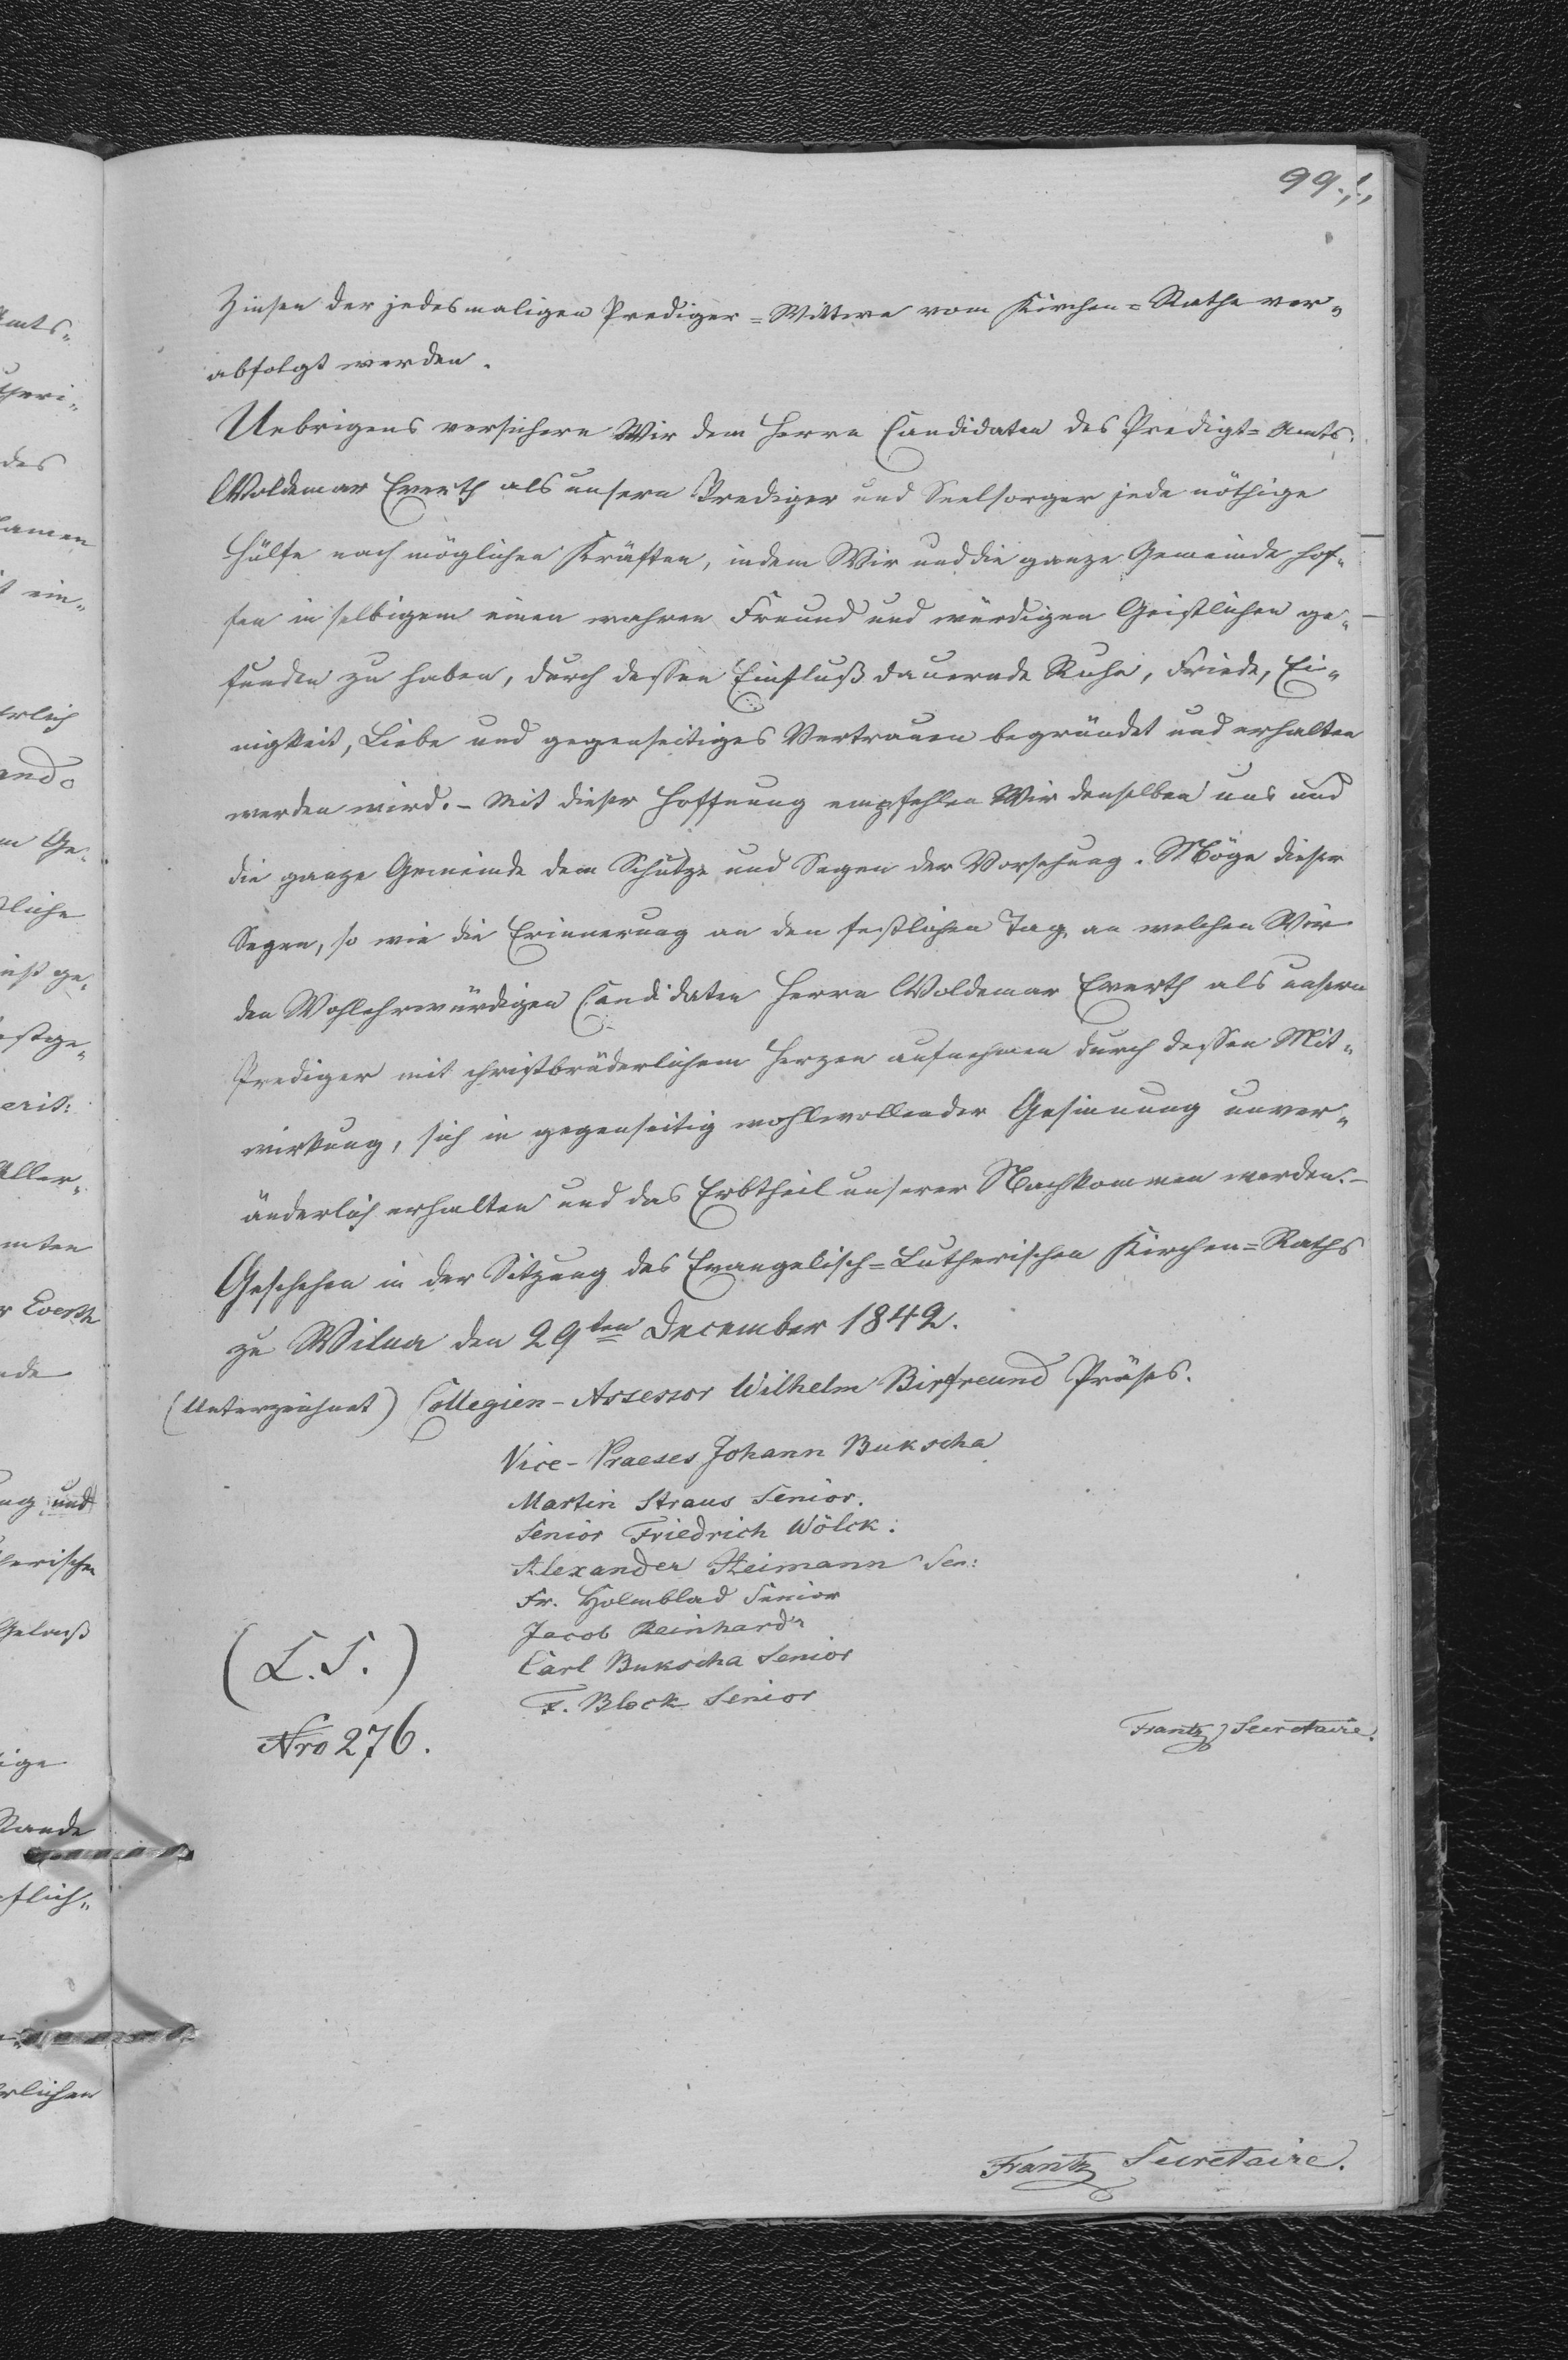 99.
Zinsen der jedesmaligen Prediger=Wittwe vom Kirchen=Rathe ver„
abfolgt werden.
Uebrigens versichern Wir dem Herrn Candidaten des Predigt=Amts.
Woldemar Everth als unsern Prediger und Seelsorger jede nöthige
Hülfe nach möglichen Kräften, indem Wir und die ganze Gemeinde hof„
fen in selbigem einen wahren Freund und würdigen Geistlichen ge„
funden zu haben, durch dessen Einfluß dauernde Ruhe, Friede, Ei„
nigkeit, Liebe und gegenseitiges Vertrauen begründet und erhalten
werden wird. – Mit dieser Hoffnung empfehlen Wir denselben uns und
die ganze Gemeinde dem Schutze und Segen der Vorsehung. Möge dieser
Segen, so wie die Erinnerung an den festlichen Tag, an welchen Wir
den Wohlehrwürdigen Candidaten Herrn Woldemar Everth als unsern
Prediger mit christbrüderlichem Herzen aufnehmen durch dessen Mit„
wirkung, sich in gegenseitig wohlwollender Gesinnung unver„
änderlich erhalten und das Erbtheil unserer Nachkommen werden. –
Geschehen in der Sitzung des Evangelisch=Lutherischen Kirchen=Raths
zu Wilna den 29ten December 1842.
(Unterzeichnet) Collegien-Assessor Wilhelm Birfreund Präses.
Vice-Praeses Johann Bukscha
Martin Straus Senior.
Senior Friedrich Wölck.
Alexander Heimann Sen:
Fr. Holmblad Senior
Jacob Reinhard
(L.S.) Carl Bukscha Senior
F. Block Senior
Nro 276.
Frantz Secretaire.
Frantz Secretaire.